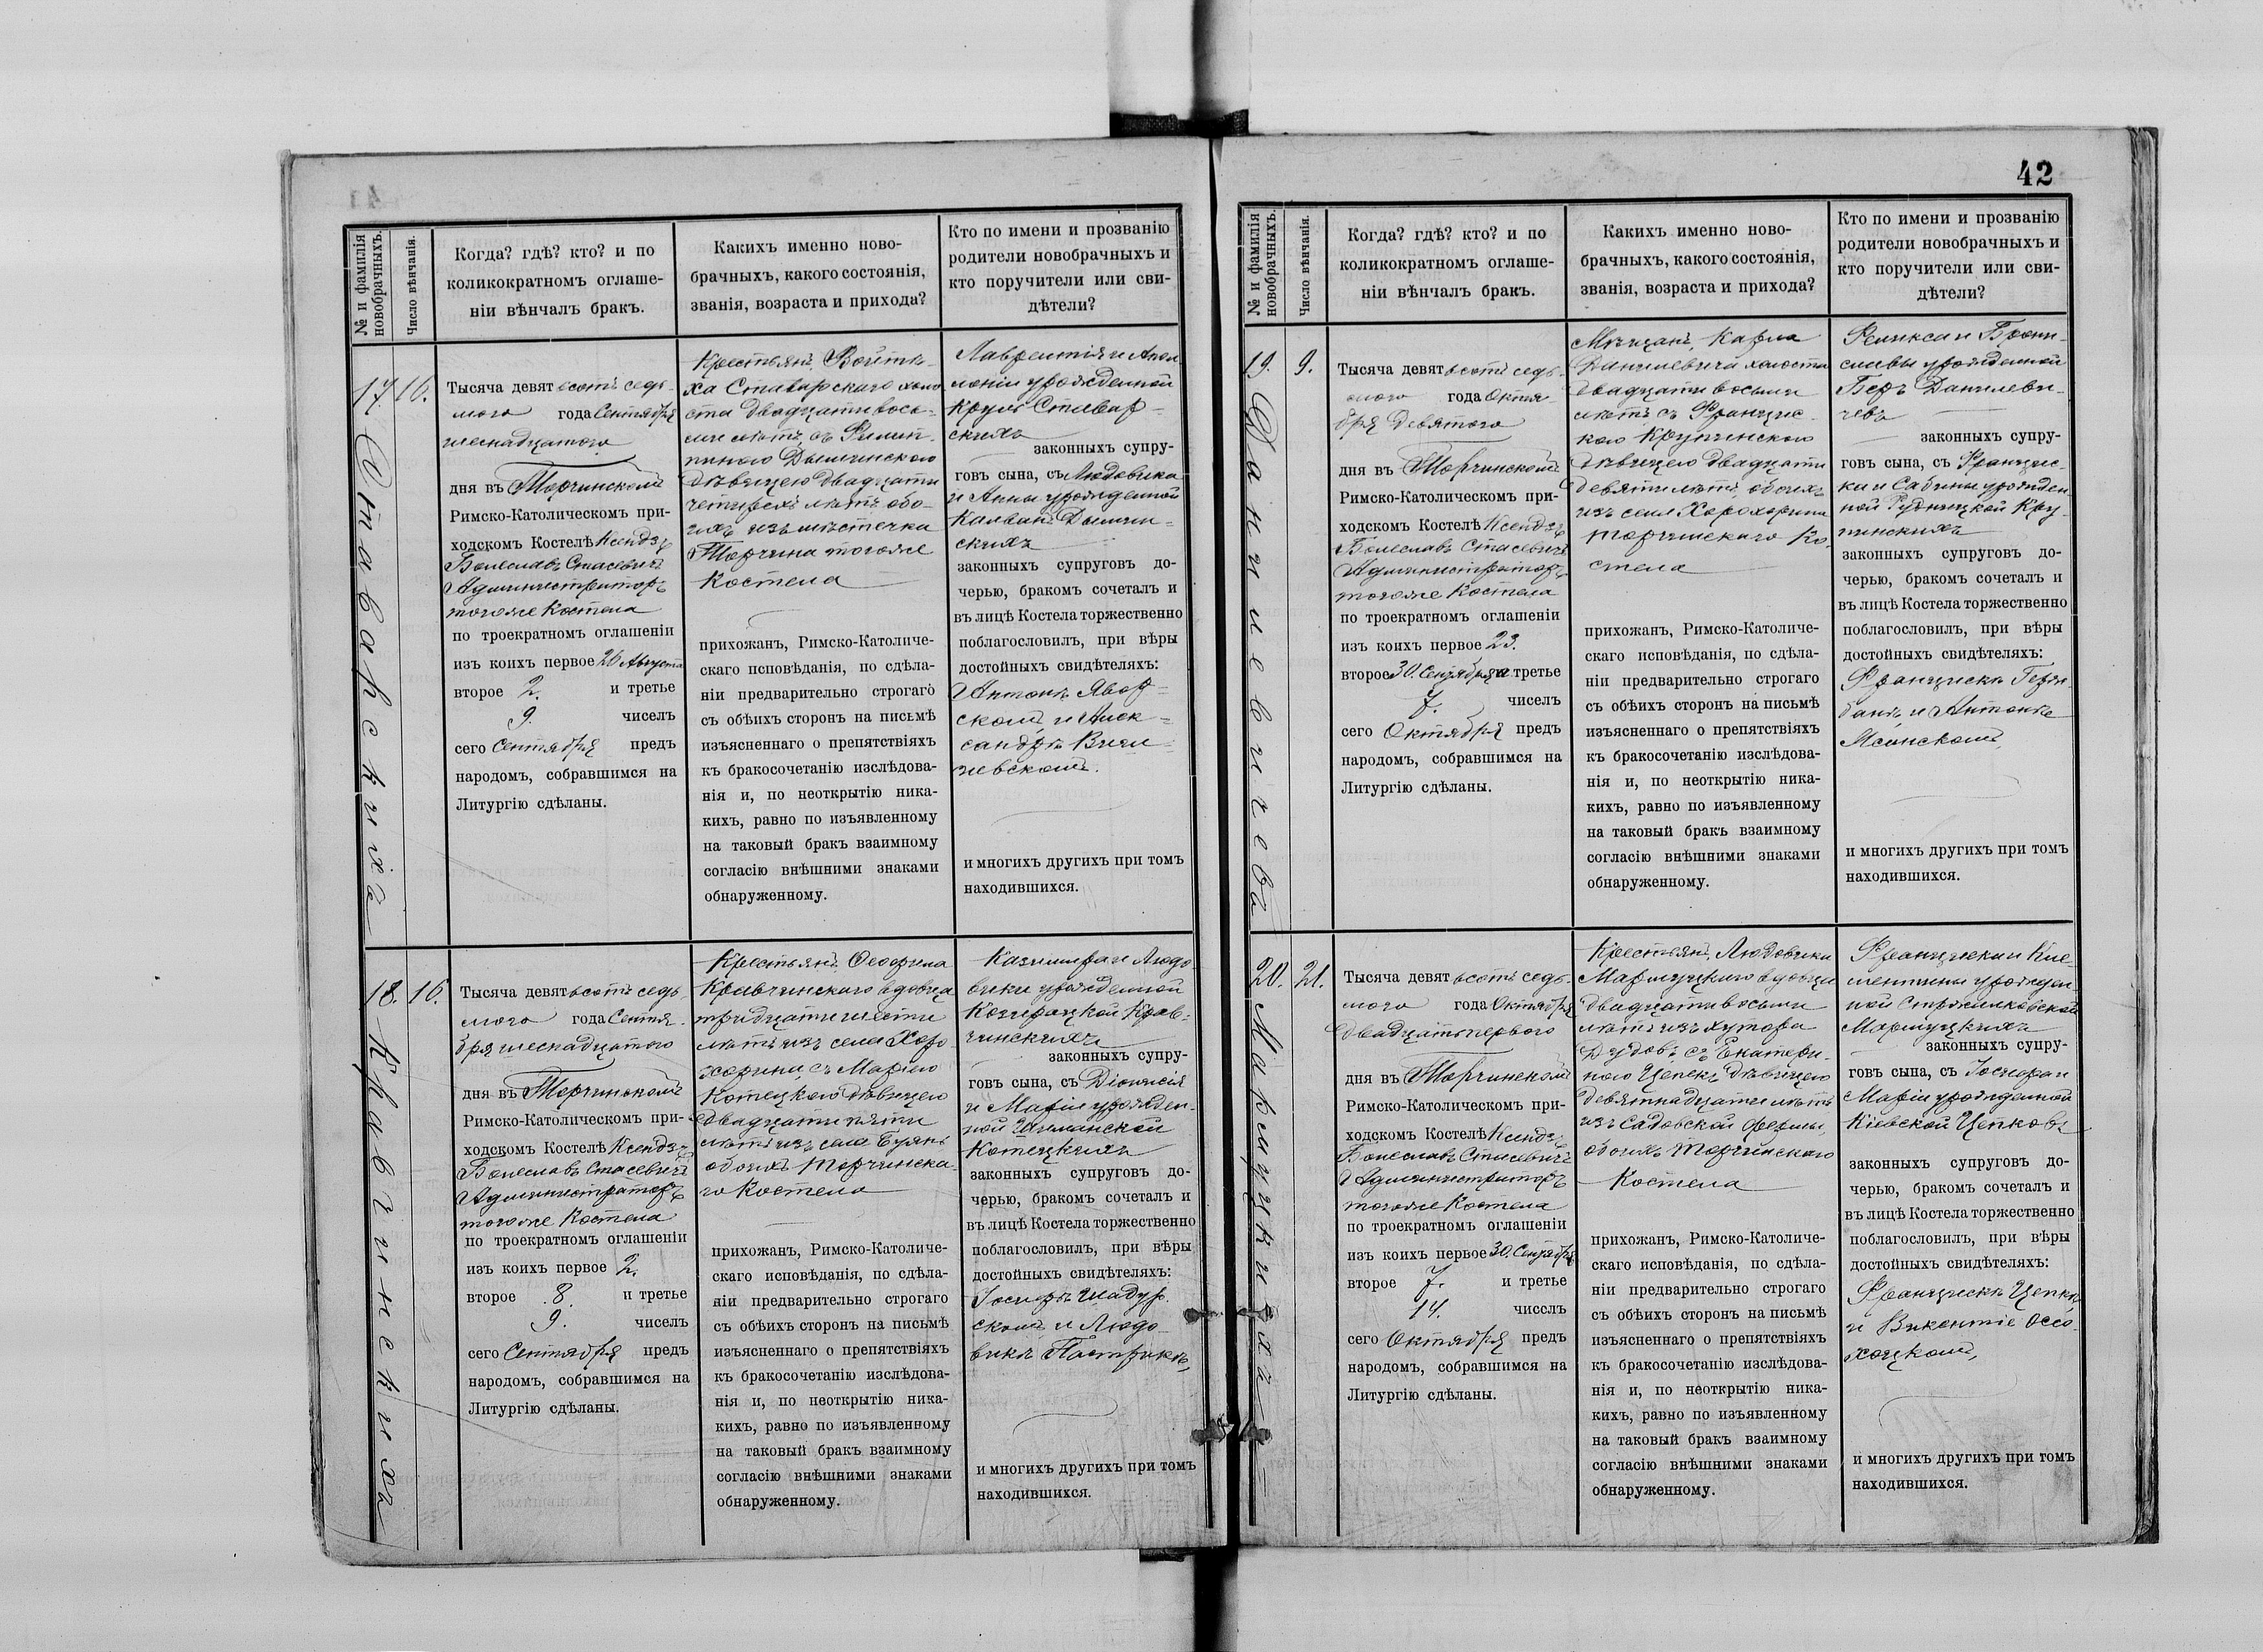 № и фамилія
новобрачныхъ.
Число вѣнчанія.
Когда? гдѣ? кто? и по
коликократномъ оглаше-
ніи вѣнчалъ бракъ.
Какихъ именно ново-
брачныхъ, какого состоянія,
званія, возраста и прихода?
Кто по имени и прозванію
родители новобрачныхъ и
кто поручители или сви-
дѣтели?
17.
Ставарскихъ
16.
Тысяча девятьсотъ седь-
мого года Сентября
шеснадцатого
дня въ Торчинскомъ
Римско-Католическомъ при-
ходскомъ Костелѣ Ксендзъ
Болеславъ Стасевичъ
Администраторъ
тогоже Костела
по троекратномъ оглашеніи
изъ коихъ первое 26 Августа
второе 2. и третье
9. чиселъ
сего Сентября предъ
народомъ, собравшимся на
Литургію сдѣланы.
Крестьянъ, Войтѣ-
ха Ставарского холо-
ста двадцативось-
ми лѣтъ, съ Филип-
пиною Дымчинского
дѣвицею двадцати
четырехъ лѣтъ обо-
ихъ изъ мѣстечка
Торчина тогоже
Костела
прихожанъ, Римско-Католиче-
скаго исповѣданія, по сдѣла-
ніи предварительно строгаго
съ обѣихъ сторонъ на письмѣ
изъясненнаго о препятствіяхъ
къ бракосочетанію изслѣдова-
нія и, по неоткрытію ника-
кихъ, равно по изъявленному
на таковый бракъ взаимному
согласію внѣшними знаками
обнаруженному.
Лаврентія и Апол-
лоніи урожденной
Круль Ставар-
скихъ
законныхъ супру-
говъ сына, съ Людовика
и Анны урожденной
Калванъ Дымчин-
скихъ
законныхъ супруговъ до-
черью, бракомъ сочеталъ и
въ лицѣ Костела торжественно
поблагословилъ, при вѣры
достойныхъ свидѣтеляхъ:
Антонѣ Явор-
скомъ и Алек-
сандрѣ
и многихъ другихъ при томъ
находившихся.
18.
Кравчинскихъ
16.
Тысяча девятьсотъ седь-
мого года Сентя-
бря шеснадцатого
дня въ Торчинскомъ
Римско-Католическомъ при-
ходскомъ Костелѣ Ксендзъ
Болеславъ Стасевичъ
Администраторъ
тогоже Костела
по троекратномъ оглашеніи
изъ коихъ первое 2.
второе 8. и третье
9. чиселъ
сего Сентября предъ
народомъ, собравшимся на
Литургію сдѣланы.
Крестьянъ, Теофила
Кравчинского вдовца
тридцати шести
лѣтъ изъ села Хоро-
хорина, съ Маріею
Котецкого дѣвицею
двадцати пяти
лѣтъ изъ села Буянъ
обоихъ Торчинска-
го Костела
прихожанъ, Римско-Католиче-
скаго исповѣданія, по сдѣла-
ніи предварительно строгаго
съ обѣихъ сторонъ на письмѣ
изъясненнаго о препятствіяхъ
къ бракосочетанію изслѣдова-
нія и, по неоткрытію ника-
кихъ, равно по изъявленному
на таковый бракъ взаимному
согласію внѣшними знаками
обнаруженному.
Казимира и Людо-
вики урожденной
Козирацкой Крав-
чинскихъ
законныхъ супру-
говъ сына, съ Діонисія
и Маріи урожден-
ной Шиманской
Котецкихъ
законныхъ супруговъ до-
черью, бракомъ сочеталъ и
въ лицѣ Костела торжественно
поблагословилъ, при вѣры
достойныхъ свидѣтеляхъ:
Іосифѣ Шадур-
скомъ и Людо-
викѣ Пастрикѣ,
и многихъ другихъ при томъ
находившихся.
42
№ и фамилія
новобрачныхъ.
Число вѣнчанія.
Когда? гдѣ? кто? и по
коликократномъ оглаше-
ніи вѣнчалъ бракъ.
Какихъ именно ново-
брачныхъ, какого состоянія,
званія, возраста и прихода?
Кто по имени и прозванію
родители новобрачныхъ и
кто поручители или сви-
дѣтели?
19.
Данилевичевъ
9.
Тысяча девятьсотъ седь-
мого года Октя-
бря девятого
дня въ Торчинскомъ
Римско-Католическомъ при-
ходскомъ Костелѣ Ксендзъ
Болеславъ Стасевичъ
Администраторъ
тогоже Костела
по троекратномъ оглашеніи
изъ коихъ первое 23.
второе 30. Сентября и третье
7. чиселъ
сего Октября предъ
народомъ, собравшимся на
Литургію сдѣланы.
Мѣщанъ, Карла
Данилевича холоста
двадцати восьми
лѣтъ съ Францис-
кою Крупинского
дѣвицею двадцати
девяти лѣтъ, обоихъ
изъ села Хорохорина
Торчинского Ко-
стела
прихожанъ, Римско-Католиче-
скаго исповѣданія, по сдѣла-
ніи предварительно строгаго
съ обѣихъ сторонъ на письмѣ
изъясненнаго о препятствіяхъ
къ бракосочетанію изслѣдова-
нія и, по неоткрытію ника-
кихъ, равно по изъявленному
на таковый бракъ взаимному
согласію внѣшними знаками
обнаруженному.
Феликса и Брони-
славы урожденной
Беръ Данилеви-
чевъ
законныхъ супру-
говъ сына, съ Францис-
ка и Сабины урожден-
ной Рудницкой Кру-
пинскихъ
законныхъ супруговъ до-
черью, бракомъ сочеталъ и
въ лицѣ Костела торжественно
поблагословилъ, при вѣры
достойныхъ свидѣтеляхъ:
Францискѣ
и Антонѣ
Ясинскомъ,
и многихъ другихъ при томъ
находившихся.
20.
Мармуцкихъ
21.
Тысяча девятьсотъ седь-
мого года Октября
двадцатьпервого
дня въ Торчинскомъ
Римско-Католическомъ при-
ходскомъ Костелѣ Ксендзъ
Болеславъ Стасевичъ
Администраторъ
тогоже Костела
по троекратномъ оглашеніи
изъ коихъ первое 30. Сентября
второе 7. и третье
14. чиселъ
сего Октября предъ
народомъ, собравшимся на
Литургію сдѣланы.
Крестьянъ, Людовика
Мармуцкого вдовца
двадцати восьми
лѣтъ изъ хутора
Дудовъ, съ Екатери-
ною Цепекъ дѣвицею
девятнадцати лѣтъ
изъ Садовской фермы,
обоихъ Торчинского
Костела
прихожанъ, Римско-Католиче-
скаго исповѣданія, по сдѣла-
ніи предварительно строгаго
съ обѣихъ сторонъ на письмѣ
изъясненнаго о препятствіяхъ
къ бракосочетанію изслѣдова-
нія и, по неоткрытію ника-
кихъ, равно по изъявленному
на таковый бракъ взаимному
согласію внѣшними знаками
обнаруженному.
Франциска и Кле-
ментины урожден-
ной
Мармуцкихъ
законныхъ супру-
говъ сына, съ Іосифа и
Маріи урожденной
Кіевской Цепковъ
законныхъ супруговъ до-
черью, бракомъ сочеталъ и
въ лицѣ Костела торжественно
поблагословилъ, при вѣры
достойныхъ свидѣтеляхъ:
Францискѣ Цепкѣ
и Викентіе Оссо-
хоцкомъ,
и многихъ другихъ при томъ
находившихся.